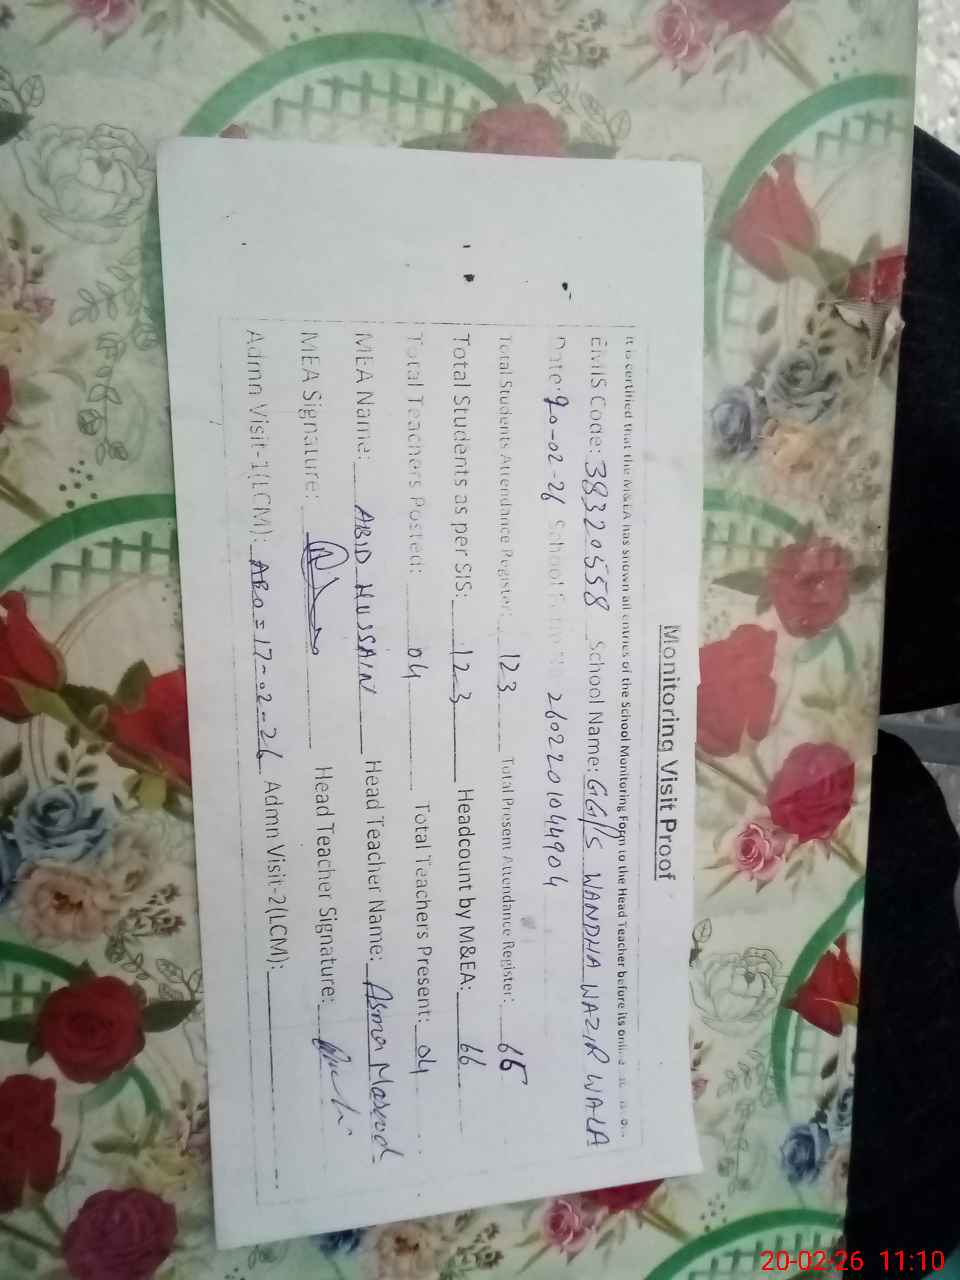 Monitoring Visit Proof
It is certified that the M&EA has shown all entries of the School Monitoring Form to the Head Teacher before its
EMIS Code: 38320558 School Name: GG/PS WANDHA WAZIR WALA
Date: 20-02-26 School 260220104904
Total Students Attendance Register: 123 Total Present Attendance Register: 66
Total Students as per SIS: 123 Headcount by M&EA: 66
Total Teachers Posted: 04 Total Teachers Present: 04
MEA Name: ABID HUSSAIN Head Teacher Name: Asma Masood
MEA Signature: Head Teacher Signature:
Admn Visit-1(LCM): = 17-02-26 Admn Visit-2(LCM):
20-02-26 11:10